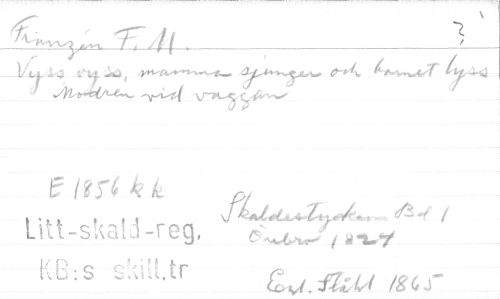 Franzén F. M.
?
Vyss vyss, mamma sjunger och barnet lyss
Modren vid vaggan
E 1856 k k
Litt-skald-reg.
KB:s skill.tr
Skaldestycken Bd 1
Örebro 1824
Enl. Ståhl 1865